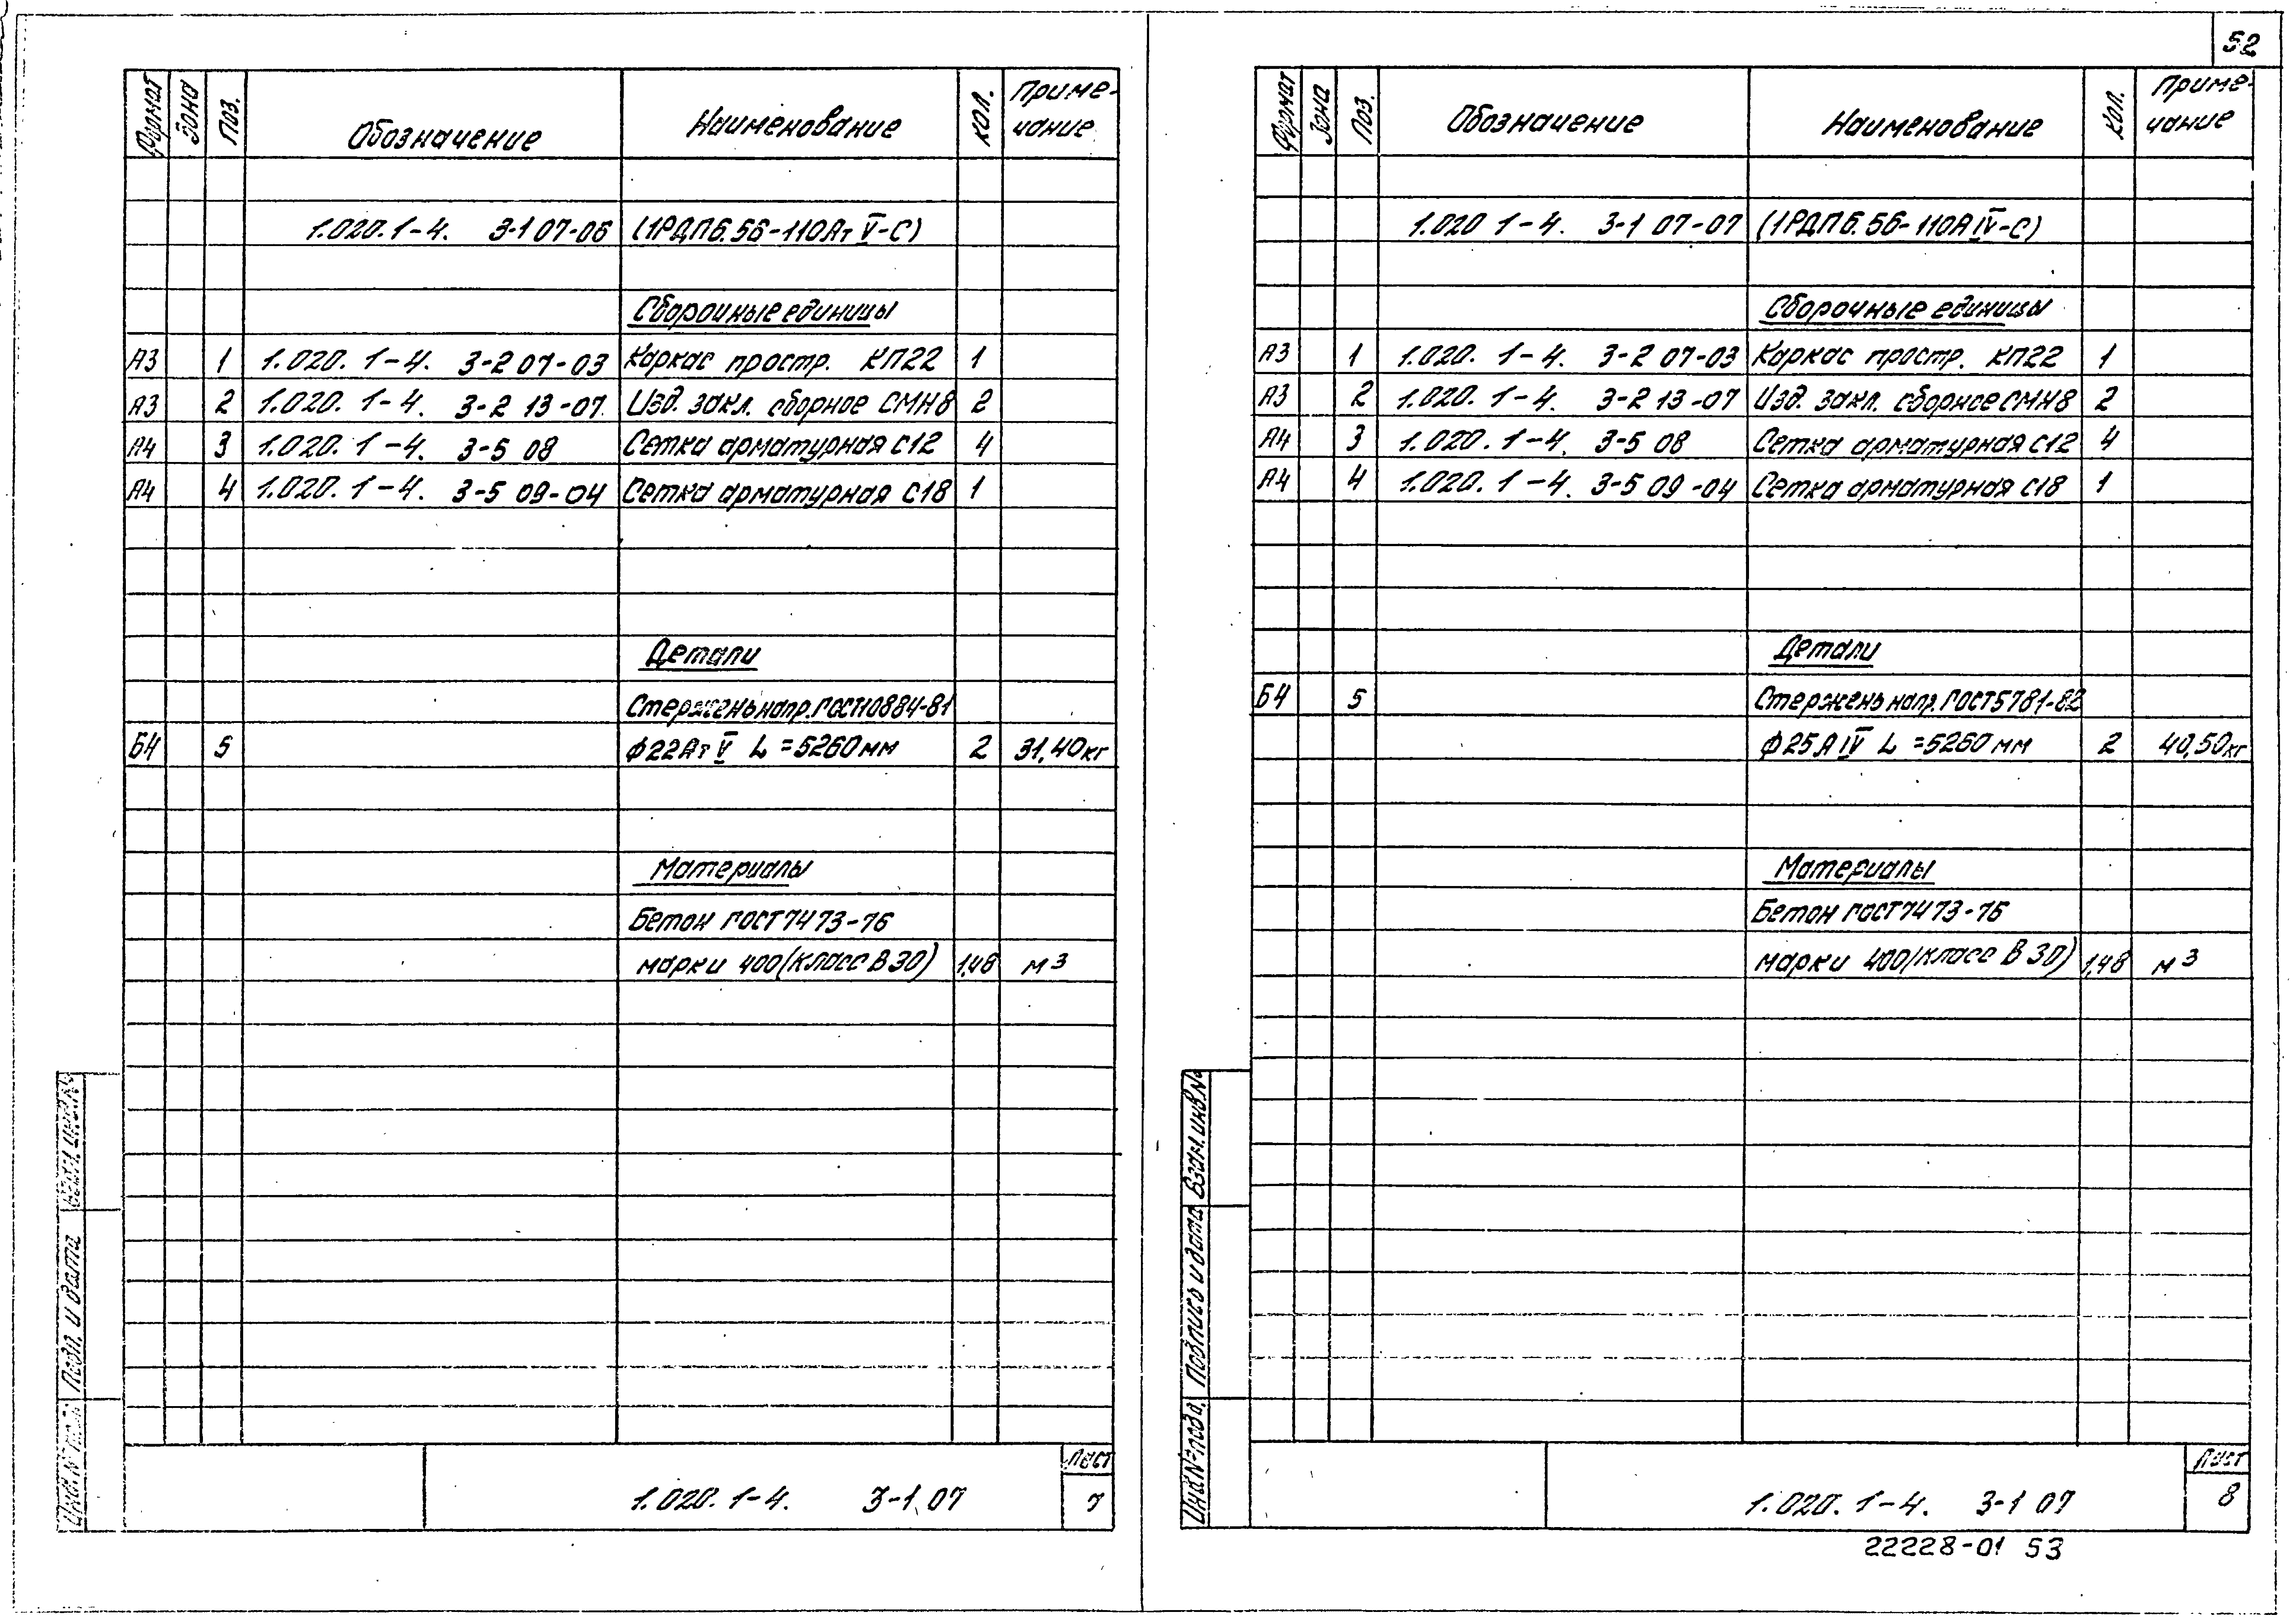 52
Формат Зона Поз. Обозначение Наименование Кол. Приме-
чание
1.020.1-4. 3-1 07-06 (1РДП6.56-110АтV-С)
Сборочные единицы
А3 1 1.020.1-4. 3-2 07-03 Каркас простр. КП22 1
А3 2 1.020.1-4. 3-2 13-07 Изд. закл. сборное СМН8 2
А4 3 1.020.1-4. 3-5 08 Сетка арматурная С12 4
А4 4 1.020.1-4. 3-5 09-04 Сетка арматурная С18 1
Детали
Стержень напр. ГОСТ10884-81
БЧ 5 ф22АтV L=5260мм 2 31,40кг
Материалы
Бетон ГОСТ7473-76
марки 400(класс В30) 1,48 м3
Инв.№подл. Подп. и дата Взам. инв.№
1.020.1-4. 3-1 07
Лист
7
Формат Зона Поз. Обозначение Наименование Кол. Приме-
чание
1.020 1-4. 3-1 07-07 (1РДП6.56-110АIV-С)
Сборочные единицы
А3 1 1.020.1-4. 3-2 07-03 Каркас простр. КП22 1
А3 2 1.020.1-4. 3-2 13-07 Изд. закл. сборное СМН8 2
А4 3 1.020.1-4. 3-5 08 Сетка арматурная С12 4
А4 4 1.020.1-4. 3-5 09-04 Сетка арматурная С18 1
Детали
БЧ 5 Стержень напр. ГОСТ5781-82
ф25АIV L=5260мм 2 40,50кг
Материалы
Бетон ГОСТ7473-76
марки 400(класс В30) 1,48 м3
Инв.№подл. Подпись и дата Взам.инв.№
1.020.1-4. 3-1 07
Лист
8
22228-01 53